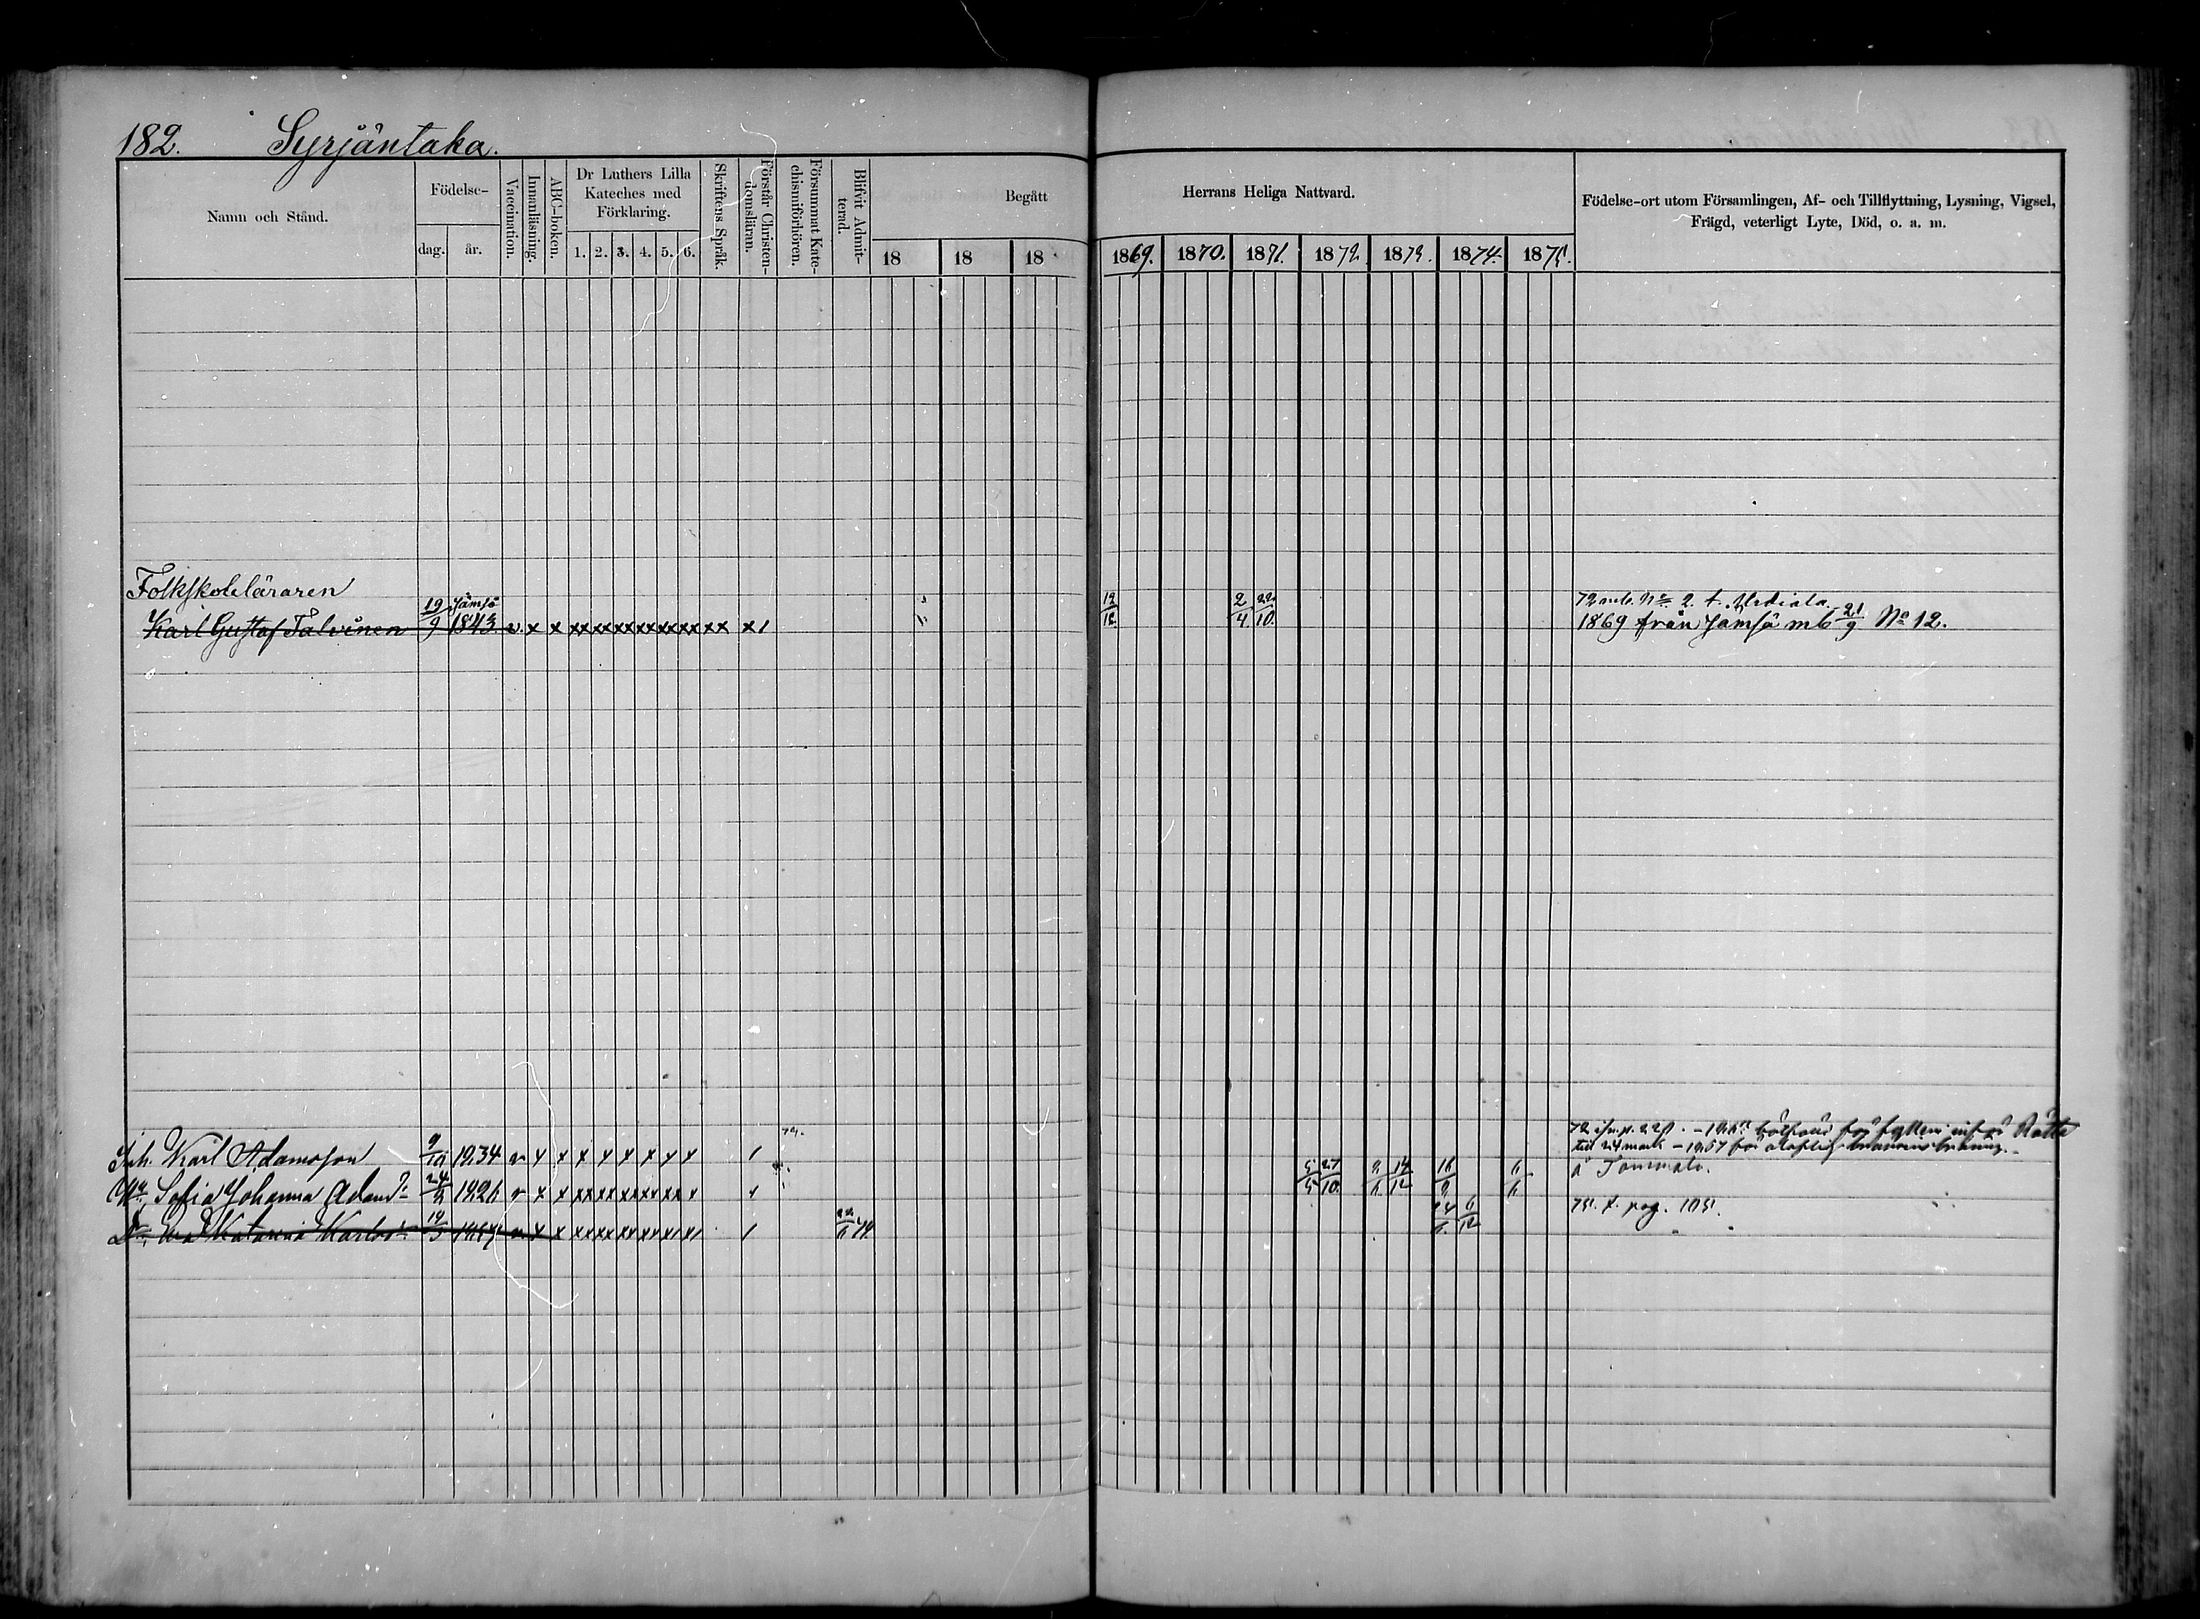 182. Syrjäntaka.
Namn och Stånd.
Födelse-
dag. år.
Vaccination.
Innanläsning.
ABC-boken.
Dr Luthers Lilla
Kateches med
Förklaring.
1. 2. 3. 4. 5. 6.
Skriftens Språk.
Förstår Christen-
domsläran.
Försummat Kate-
chismiförhören.
Blifvit Admit-
terad.
Begått
18 18 18
Herrans Heliga Nattvard.
1869. 1870. 1871. 1872. 1873. 1874. 1875.
Födelse-ort utom Församlingen, Af- och Tillflyttning, Lysning, Vigsel,
Frägd, veterligt Lyte, Död, o. a. m.
Folkskoleläraren
Karl Gustaf Talvinen 19/9 Jämsä 1843 v. x x xx xx xx xx xx xx xx x1
12/12 2/4 22/10
72 mb. No 2. t. Urdiala.
1869 från Jämsä mb 21/9 No 12.
Inh. Karl Adamsson 1834 v x x x x x x x x
Sofia Johanna Adamsd 24/9 1826 v x x xx xx xx xx xx x
Eva Katarina Karlsd
5/5 27/10
24/6 6/12
till 24 mark - 1857 för olaglig
å Tommola.
75. t. pag. 105.